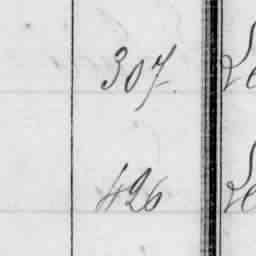 307.
426